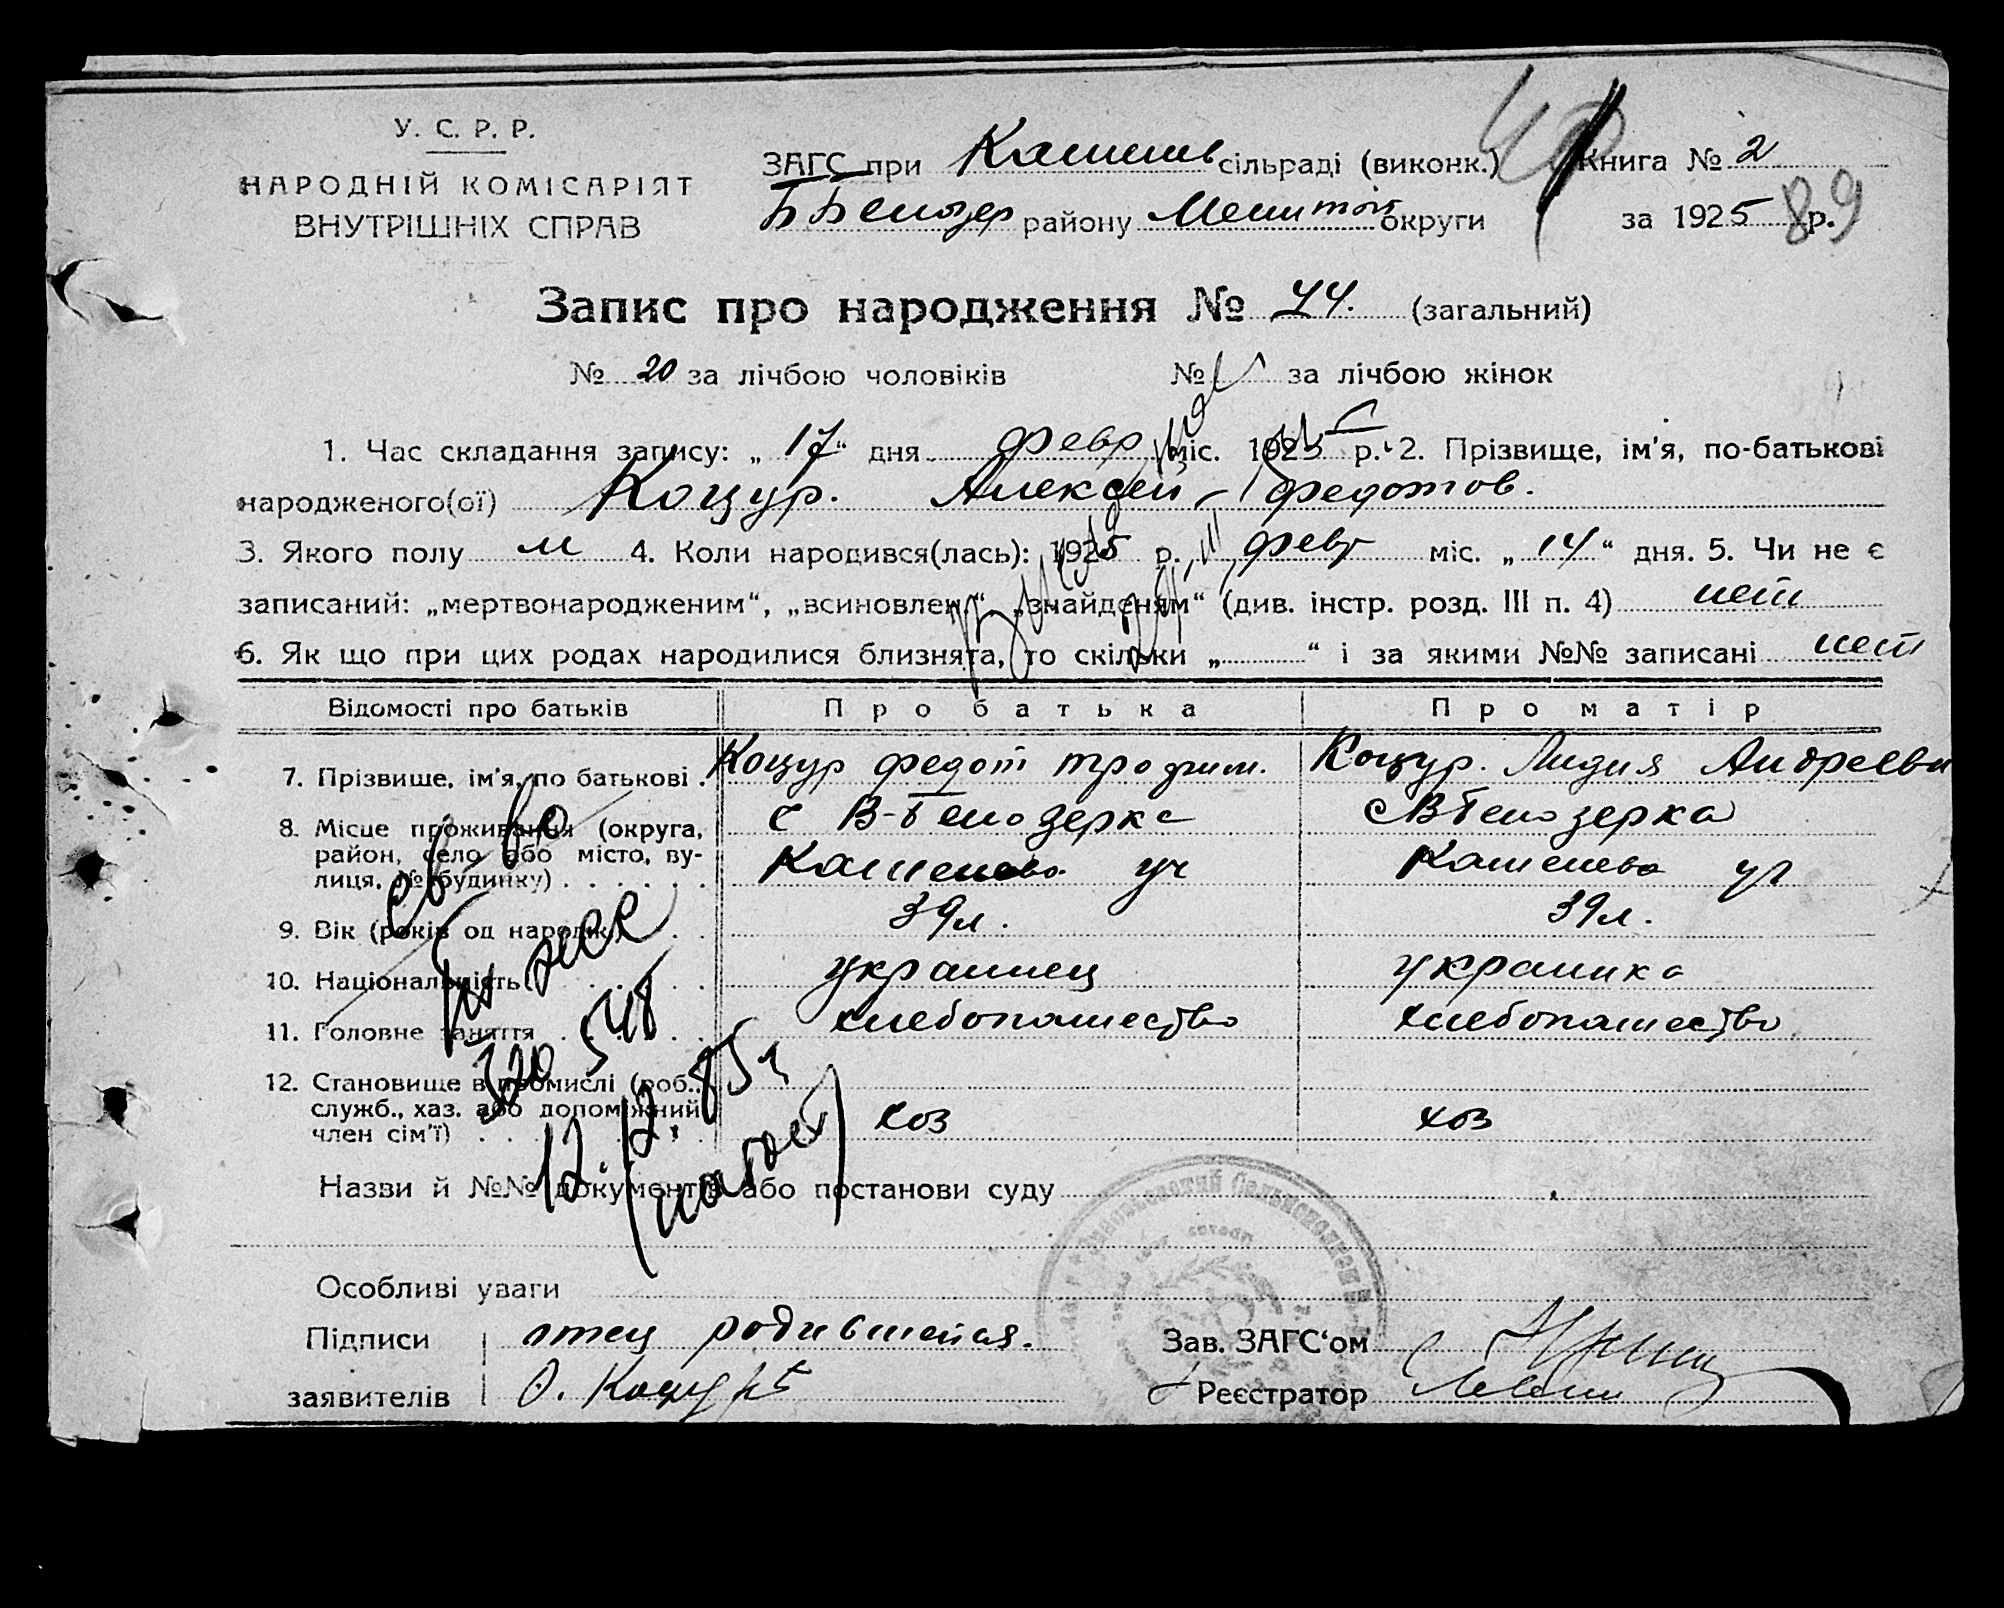 У. С. Р. Р.
НАРОДНІЙ КОМІСАРІЯТ
ВНУТРІШНІХ СПРАВ
ЗАГС при сільраді (виконк.)
району округи
Книга № 2
за 1925 р. 89
Запис про народження № 44. (загальний)
№ 20 за лічбою чоловіків № за лічбою жінок
1. Час складання запису: „ 17 “ дня февр міс. 1925 р. 2. Прізвище, ім'я, по-батькові
народженого(ої) Коцур. Алексей Федотов.
3. Якого полу м 4. Коли народився(лась): 1925 р. февр міс. „ 14 “ дня. 5. Чи не є
записаний: „мертвонародженим“, „всиновлен“ „знайденям“ (див. інстр. розд. III п. 4) нет
6. Як що при цих родах народилися близнята, то скільки „ “ і за якими №№ записані нет
Відомості про батьків Про батька Про матір
7. Прізвище, ім'я, по батькові . Коцур Федот трофим. Коцур. Лидия Андреевн
8. Місце проживання (округа, с В-белозерка с В белозерка
район, село або місто, ву-
лиця, № будинку) . . . . . .
9. Вік (років од народж.) . . 39л. 39л.
10. Національність . . . . украинец украинка
11. Головне заняття . . . . хлебопашество хлебопашество
12. Становище в промислі (роб.,
служб., хаз. або допоміжний хоз хоз
член сім'ї) . . . . . .
св-во
320548
12.12.85г
Назви й №№ документів або постанови суду
Особливі уваги
Підписи отец родившейся.
заявителів
Зав. ЗАГС‘ом
Реєстратор